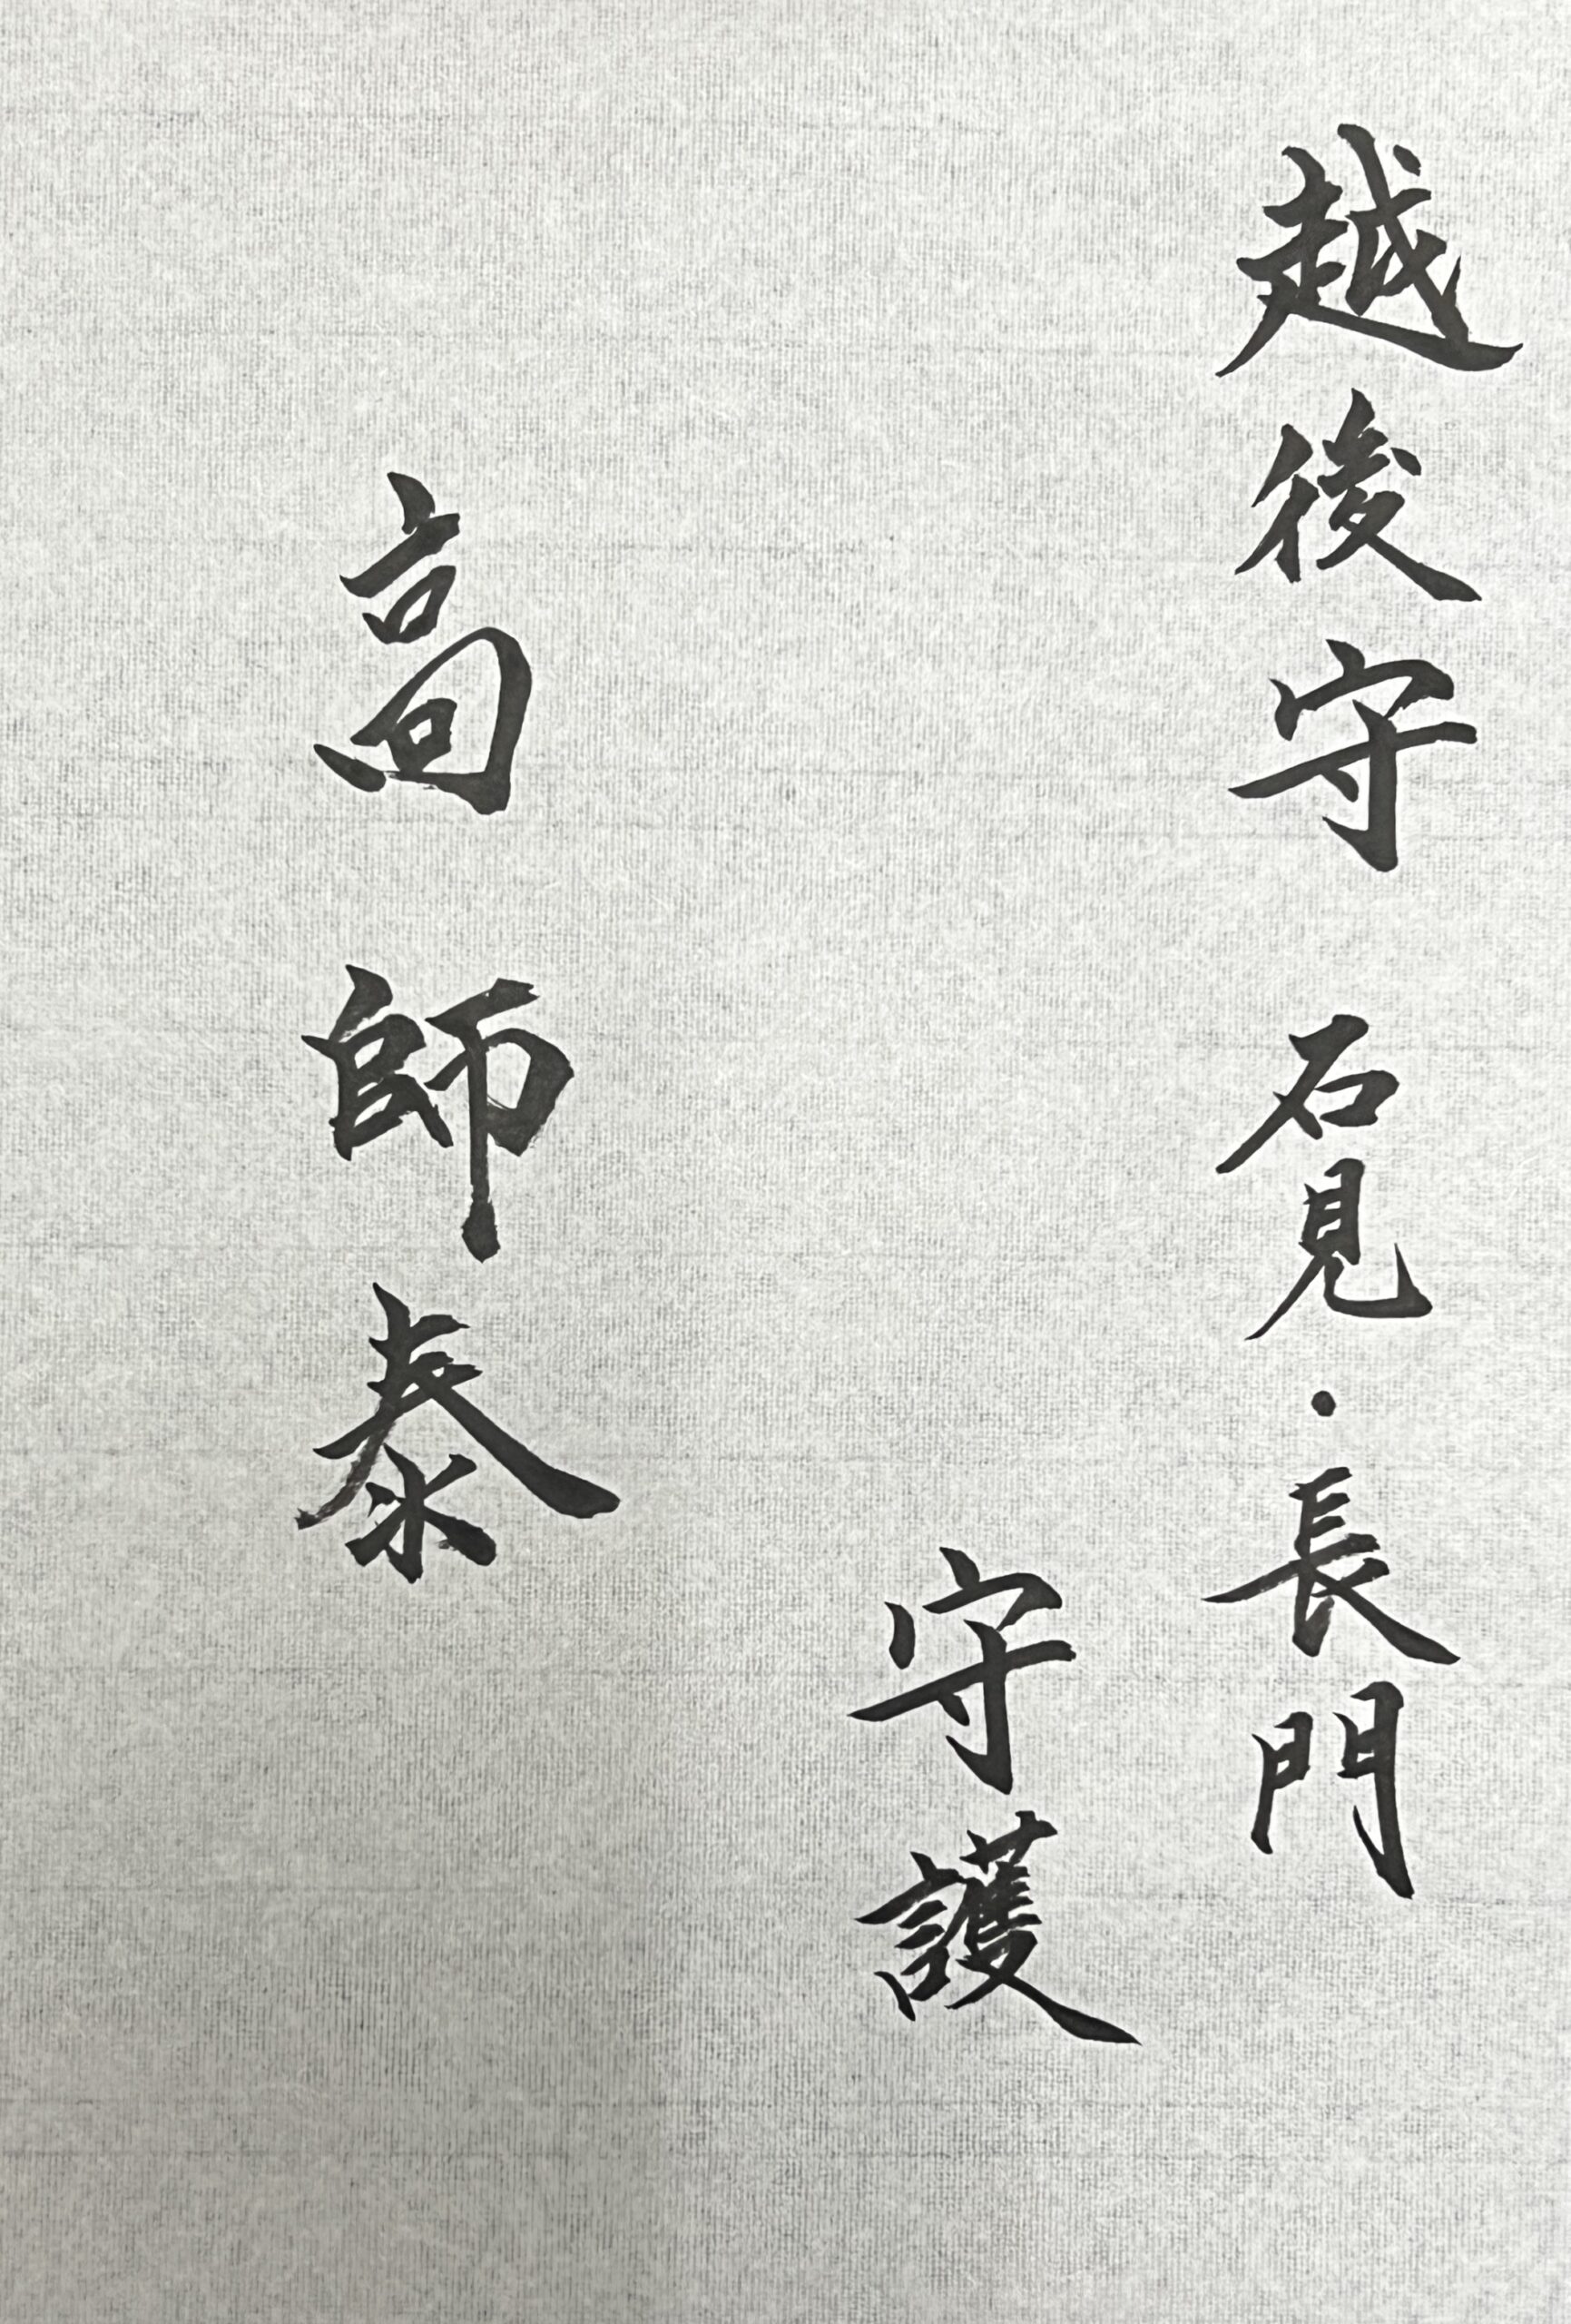 越後守 石見・長門
守護
高師泰